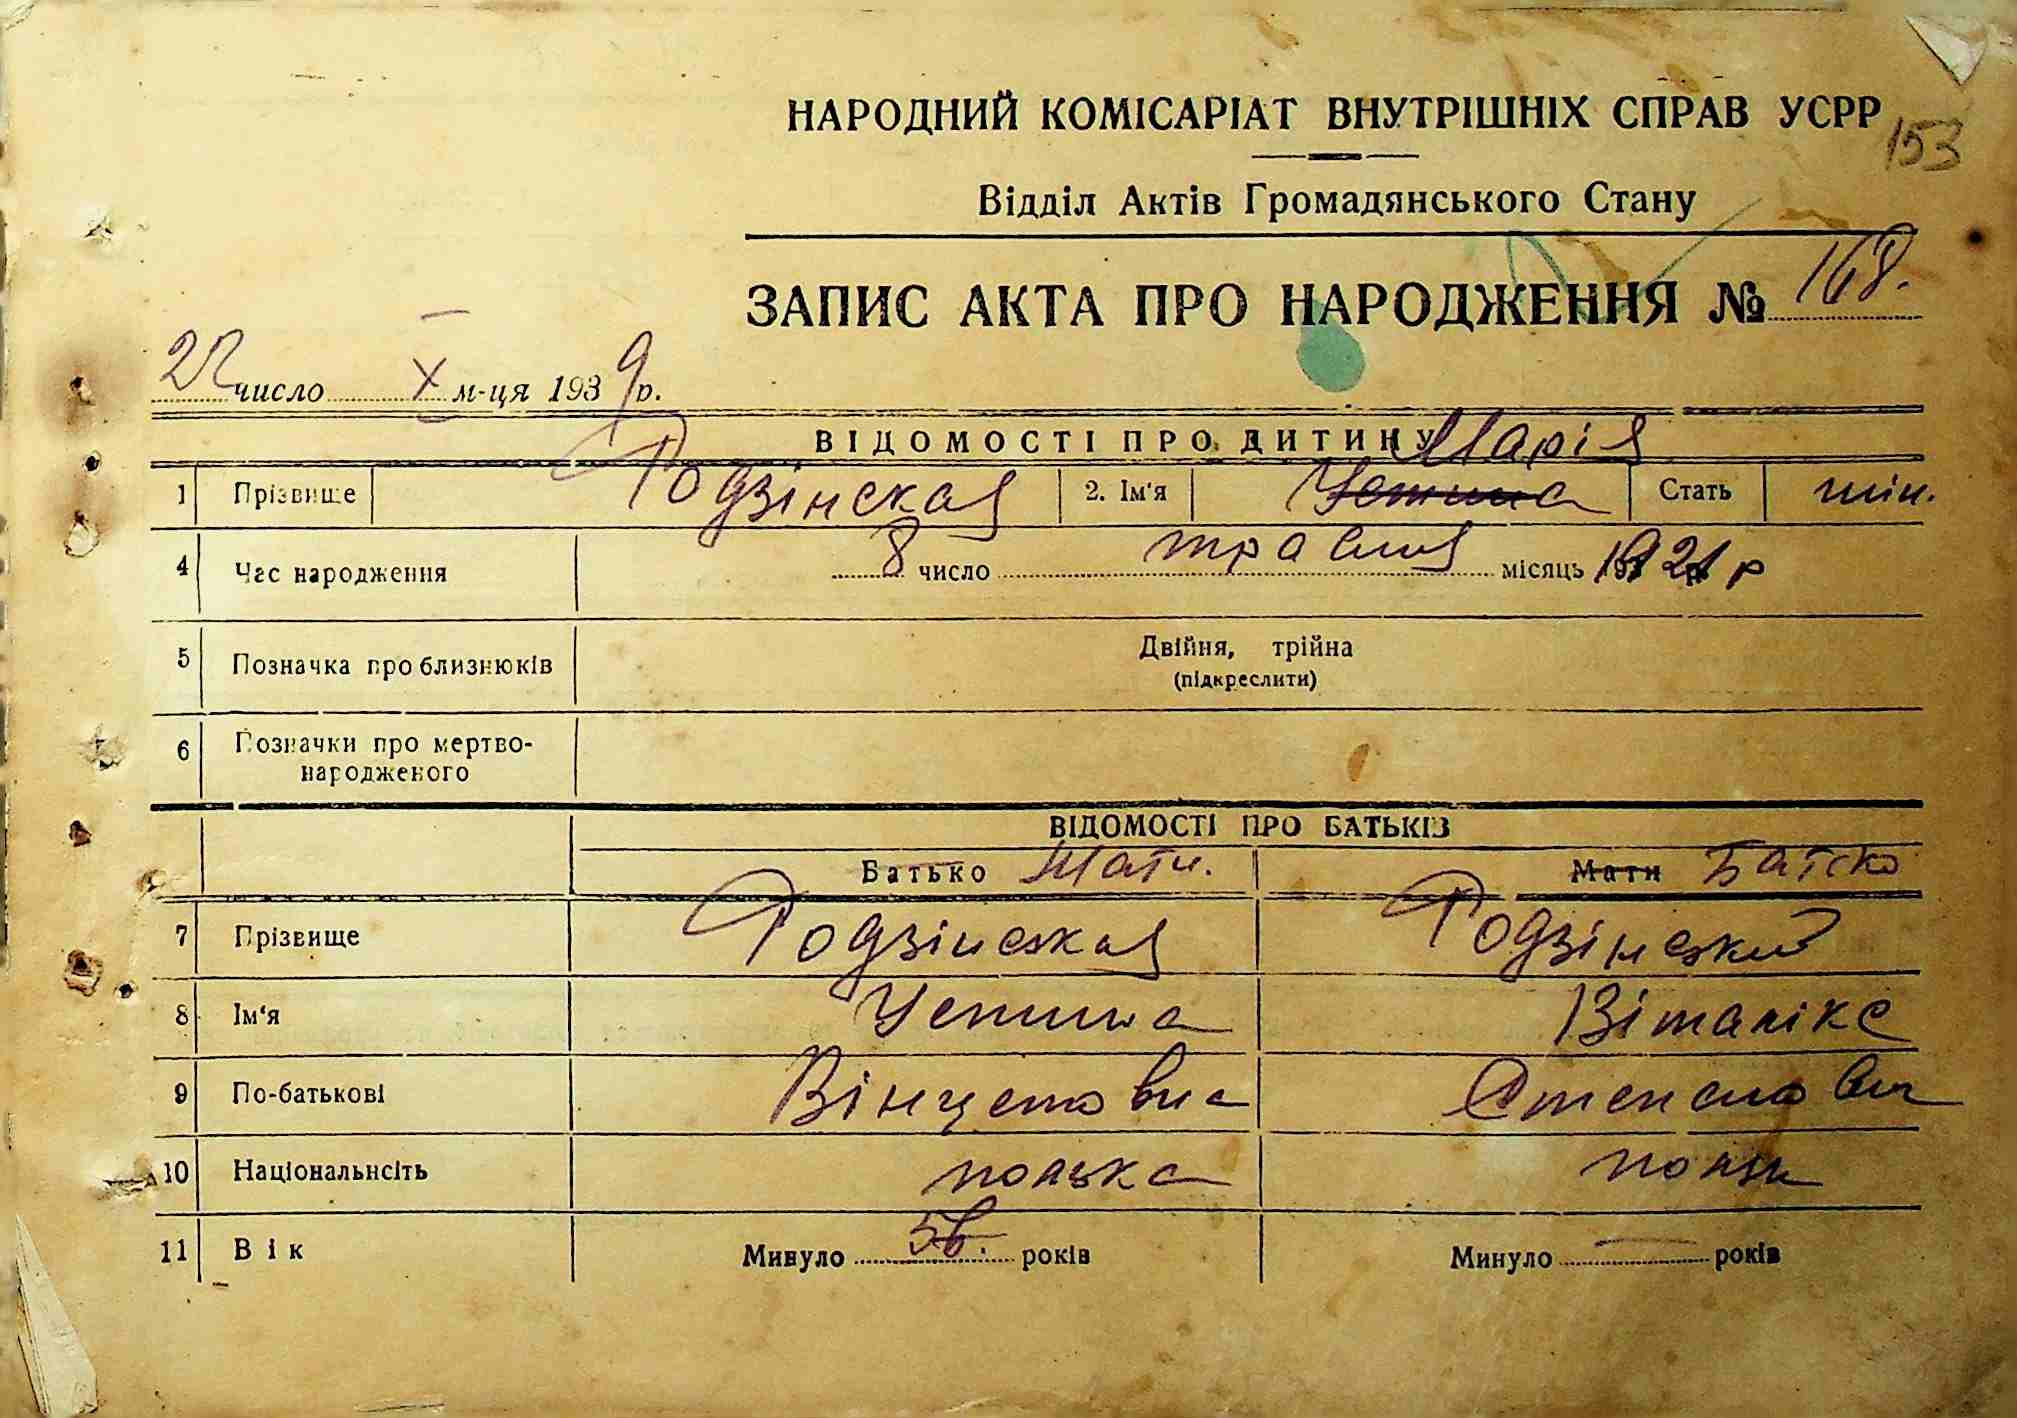 НАРОДНИЙ КОМІСАРІАТ ВНУТРІШНІХ СПРАВ УСРР
153
Відділ Актів Громадянського Стану
ЗАПИС АКТА ПРО НАРОДЖЕННЯ № 168.
22 число X м-ця 1939 р.
ВІДОМОСТІ ПРО ДИТИНУ Марія
1 Прізвище Родзінская 2. Ім'я Устина Стать жін.
4 Час народження 8 число травня місяць 1921 р
5 Позначка про близнюків Двійня, трійна
(підкреслити)
6 Позначки про мертво-
народженого
ВІДОМОСТІ ПРО БАТЬКІВ
Батько Мати. Мати Батско
7 Прізвище Родзінская Родзінский
8 Ім'я Устина Віталікс
9 По-батькові Вінцетовна
10 Національнсіть полька поляк
11 Вік Минуло 56. років Минуло — років